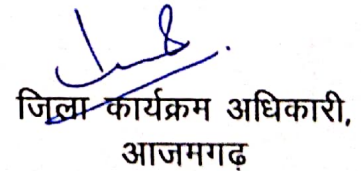 जिला कार्यक्रम अधिकारी,
आजमगढ़